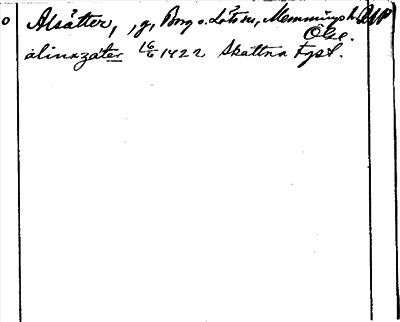 o Alsätter, , g, Borg o. Löts sn, Memmings h. Ögl.
alinazáter 16/6 1422 Skattna Fpst.